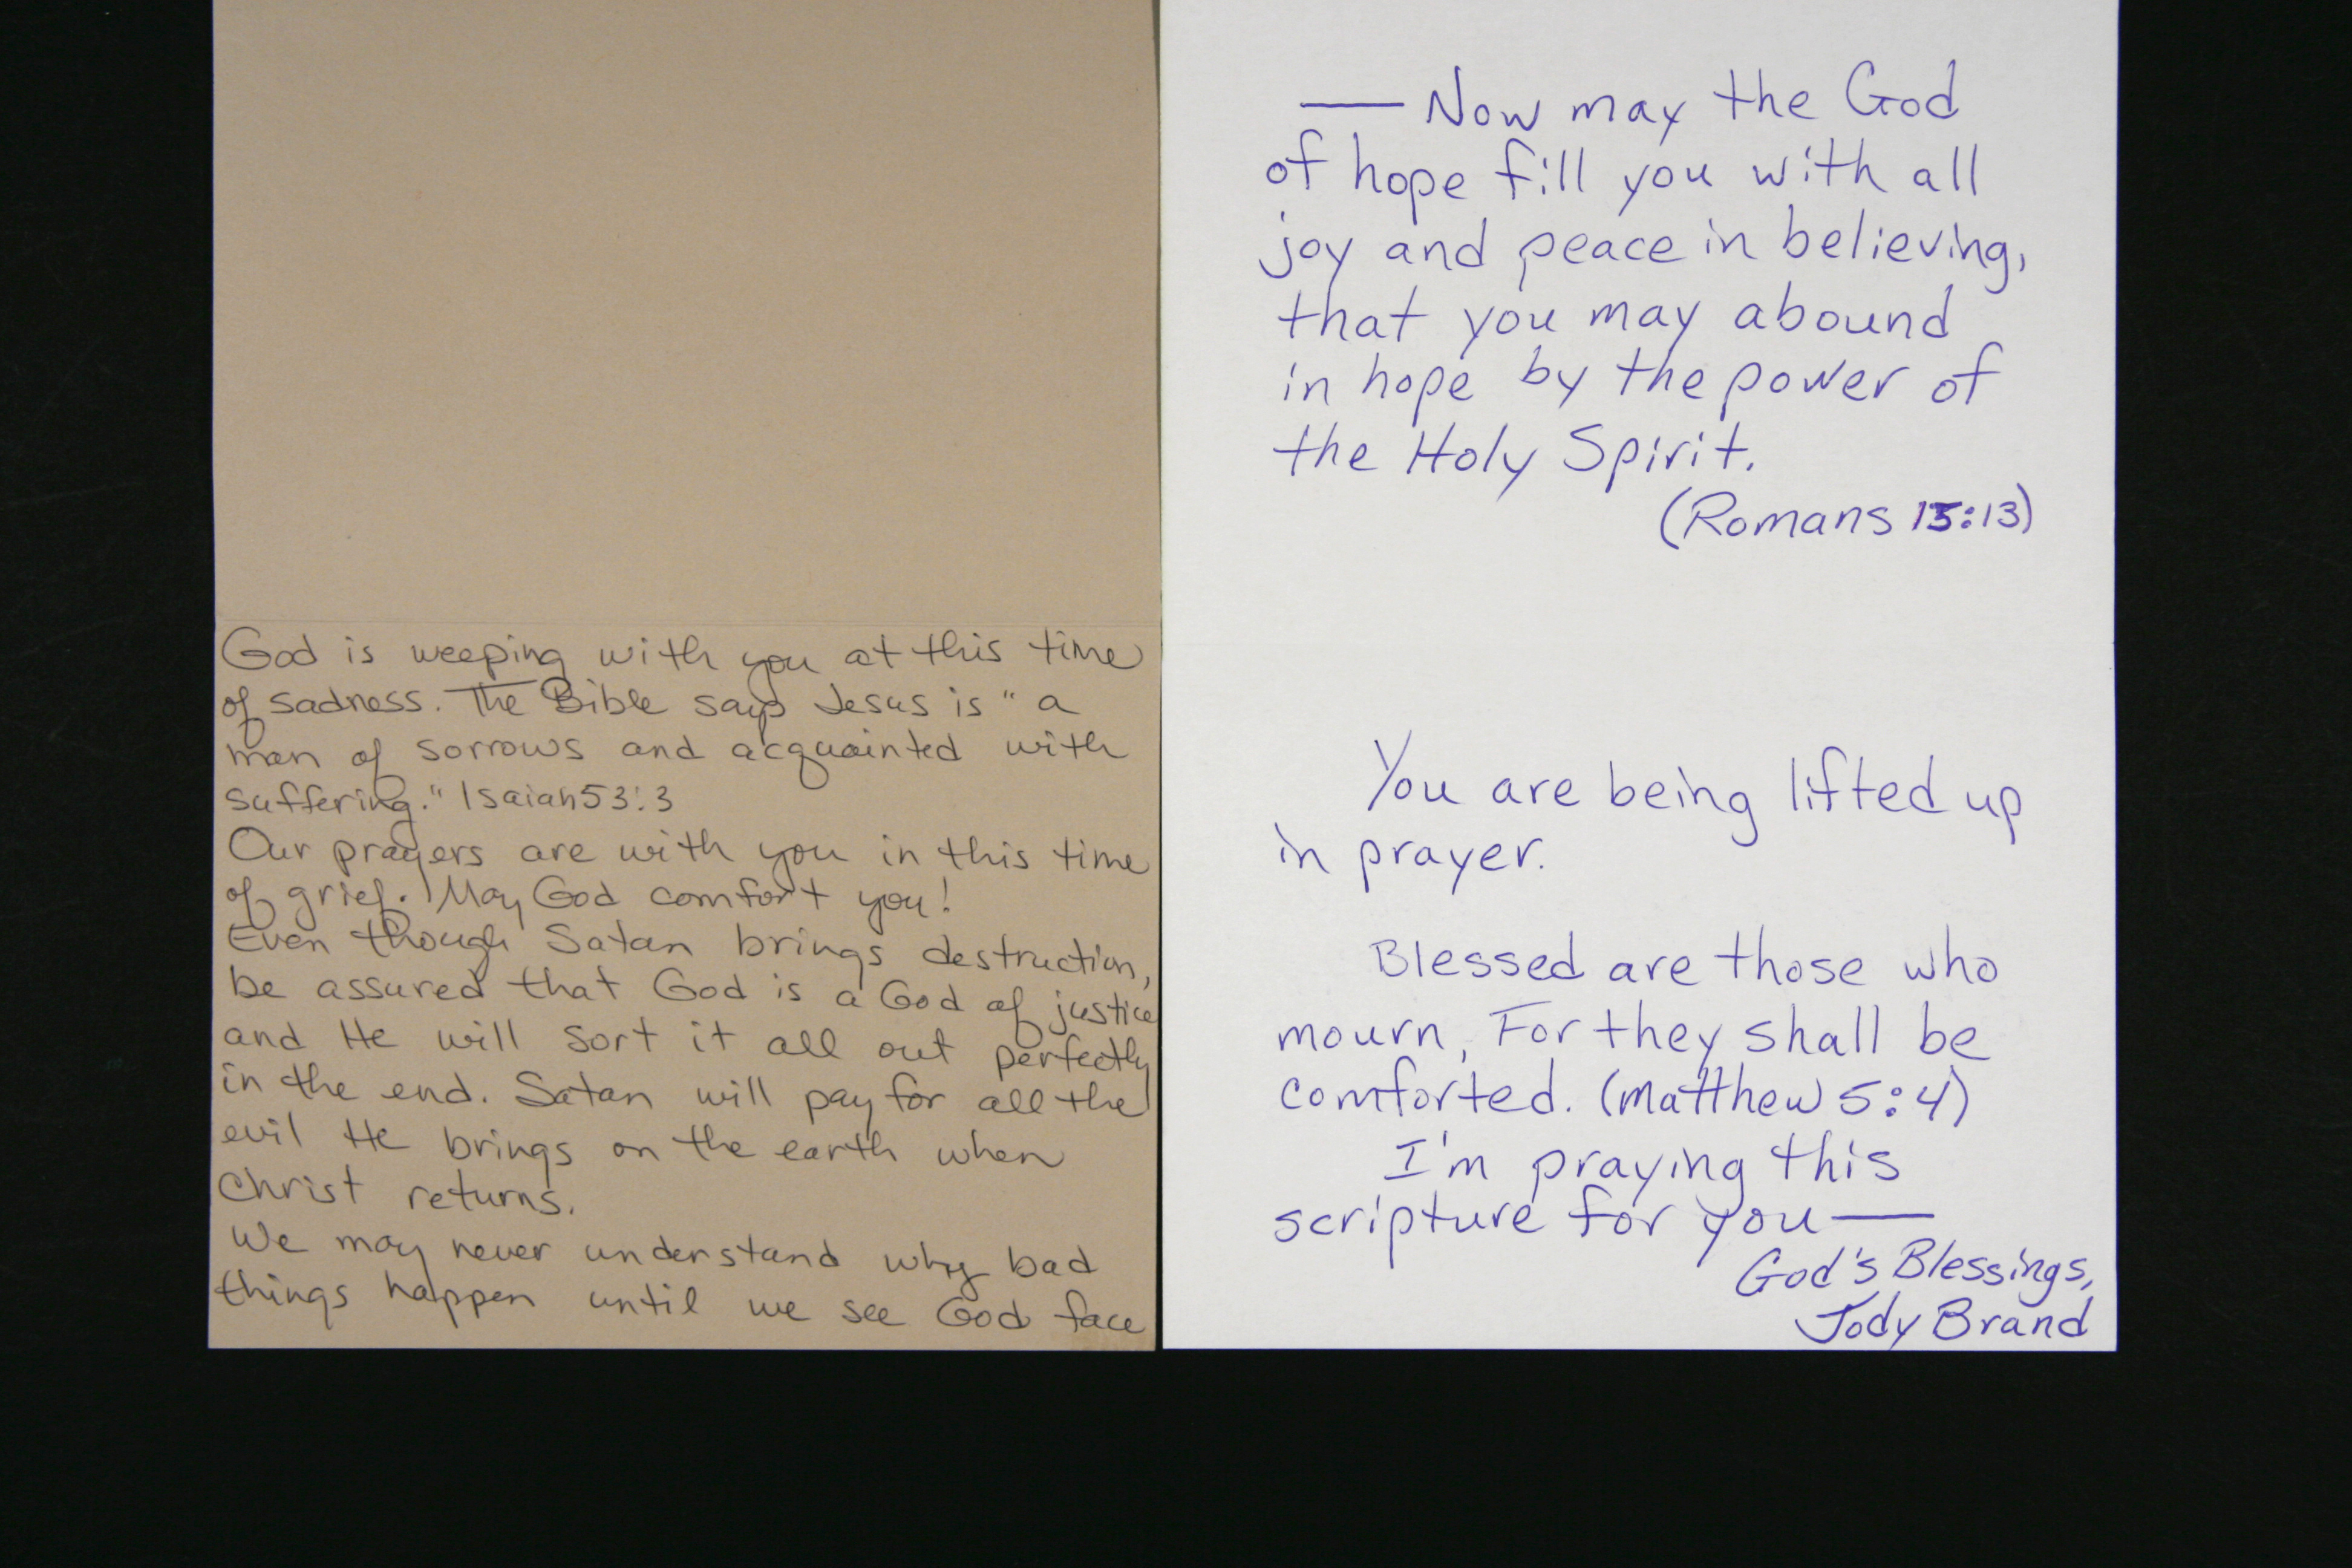 God is weeping with you at this time
of sadness. The Bible says Jesus is "a
man of sorrows and acquainted with
suffering." Isaiah 53:3
Our prayers are with you in this time
of grief. May God comfort you!
Even though Satan brings destruction,
be assured that God is a God of justice
and He will sort it all out perfectly
in the end. Satan will pay for all the
evil He brings on the earth when
Christ returns.
We may never understand why bad
things happen until we see God face
— Now may the God
of hope fill you with all
joy and peace in believing,
that you may abound
in hope by the power of
the Holy Spirit.
(Romans 15:13)
You are being lifted up
in prayer.
Blessed are those who
mourn, For they shall be
comforted. (Matthew 5:4)
I'm praying this
scripture for you —
God's Blessings,
Jody Brand